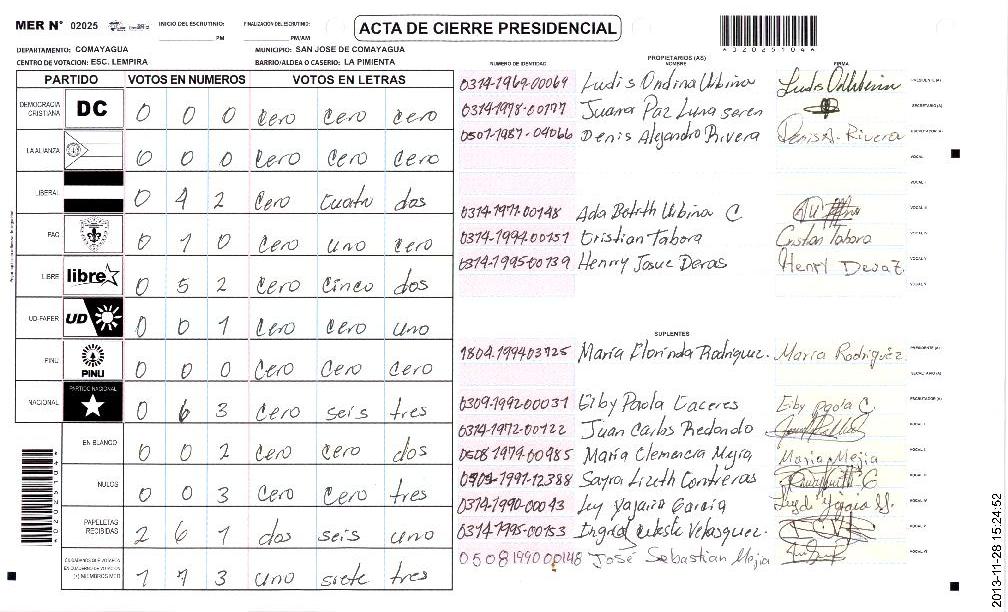 MER N° 02025 INICIO DEL ESCRUTINIO: PM FINALIZACIÓN DEL ESCRUTINIO: PM/AM ACTA DE CIERRE PRESIDENCIAL
DEPARTAMENTO: COMAYAGUA MUNICIPIO: SAN JOSE DE COMAYAGUA
CENTRO DE VOTACION: ESC. LEMPIRA BARRIO/ALDEA O CASERIO: LA PIMIENTA
PARTIDO VOTOS EN NUMEROS VOTOS EN LETRAS
DEMOCRACIA CRISTIANA DC 0 0 0 Cero Cero Cero
LA ALIANZA 0 0 0 Cero Cero Cero
LIBERAL 0 4 2 Cero Cuatro dos
PAC 0 1 0 Cero uno Cero
LIBRE libre 0 5 2 Cero Cinco dos
UD-FAPER UD 0 0 1 Cero Cero uno
PINU PINU 0 0 0 Cero Cero Cero
NACIONAL PARTIDO NACIONAL 0 6 3 Cero seis tres
EN BLANCO 0 0 2 Cero Cero dos
NULOS 0 0 3 Cero Cero tres
PAPELETAS RECIBIDAS 2 6 1 dos seis uno
(+) MIEMBROS MER 1 7 3 uno siete tres
PROPIETARIOS (AS)
NUMERO DE IDENTIDAD NOMBRE FIRMA
0314-1969-00069 Ludis Ondina Urbina PRESIDENTE (A)
0314-1978-00177 Juana Paz Luna seren SECRETARIO (A)
0507-1987-04066 Denis Alejandro Rivera Denis A. Rivera ESCRUTADOR (A)
VOCAL I
0314-1971-00148 Ada Urbina C
0314-1994-00151 Cristian Tabora Cristian Tabora
0314-1995-00139 Henry Josue Deras Henry
SUPLENTES
1804-1994-03725 Maria Florinda Rodriguez. Maria Rodriguez. PRESIDENTE (A)
SECRETARIO (A)
0309-1992-00031 Eiby Paola Caceres Eiby paola C ESCRUTADOR (A)
0314-1972-00122 Juan Carlos Redondo
0508 1974-00985 Maria Clemencia Mejia Maria Mejia
1991-12388 Sayra Lizeth Contreras
0314-1990-00043 Garcia
0314-1995-00153 Ingrid Celeste Velasquez.
0508 1990 00148 José Sebastian Mejia
2013-11-28 15:24:52